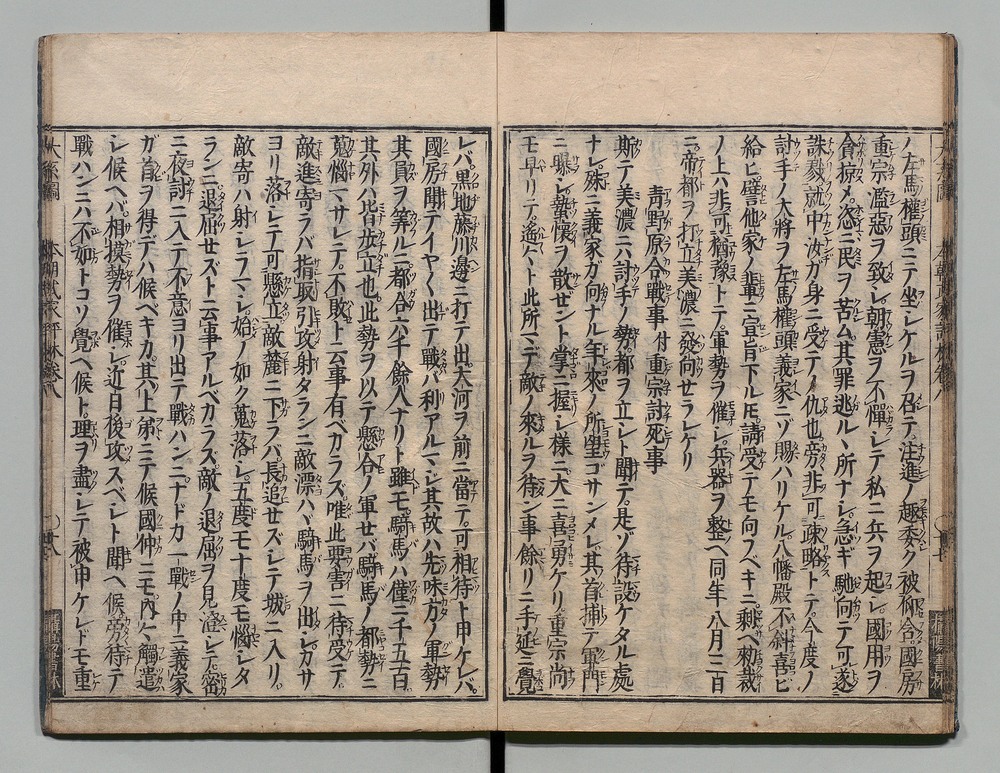 ノ左馬權頭ニテ坐シケルヲ召テ注進ノ趣委ク被仰合國房
重宗濫惡ヲ致シ朝憲ヲ不憚シテ私ニ兵ヲ起シ國用ヲ
貪掠メ恣ニ民ヲ苦ム其罪逃ルヽ所ナシ急ギ馳向テ可遂
誅戮就中汝ガ身ニ受テノ仇也旁非可疎略トテ今度ノ
討手ノ大將ヲ左馬權頭義家ニゾ賜ハリケル八幡殿不斜喜ビ
給ヒ譬他家ノ輩ニ宣旨下ルトモ請受テモ向フベキニ剰ヘ勅裁
ノ上ハ非可猶豫トテ軍勢ヲ催シ兵器ヲ整ヘ同年八月二日
ニ帝都ヲ打立美濃ニ發向セラレケリ
青野原合戰事付重宗討死事
斯テ美濃ニハ討手ノ勢都ヲ立シト聞テ是ゾ待設ケタル處
ナレ殊ニ義家ガ向ナル年來ノ所望ゴサンメレ其首捕テ軍門
ニ曝シ蟄懷ヲ散ゼント掌ニ握シ樣ニ大ニ喜勇ケリ重宗尚
モ早リテ遙ケト此所マデ敵ノ來ルヲ待ン事餘リニ手延ニ覺
レバ黒地藤川邊ニ打テ出大河ヲ前ニ當テ可相待ト申ケレバ
國房聞テイヤ〱出テ戰バ利アルマシ其故ハ先味方ノ軍勢
其員ヲ筭ルニ都合六千餘人ナリト雖モ騎馬ハ僅ニ千五百
其外ハ皆歩立也此勢ヲ以テ懸合ノ軍セバ騎馬ノ都勢ニ
惱マサレテ不敗ト云事有ベカラズ唯此要害ニ待受テ
敵進寄ラバ指取引攻射タランニ敵漂ハヾ騎馬ヲ出シカサ
ヨリ落シテ可懸立敵麓ニ下ラバ長追セズシテ城ニ入リ
敵寄ハ射シラマシ始ノ如ク蒐落シ五度モ十度モ惱シタ
ランニ退屈セズト云事アルベカラズ敵ノ退屈ヲ見澄シテ密
ニ夜討ニ入テ不意ヨリ出テ戰ハンニナドカ一戰ノ中ニ義家
ガ首ヲ得デハ候ベキカ其上弟ニテ候國仲ニモ内々觸遣
シ候ヘバ相摸勢ヲ催シ近日後攻スベシト聞ヘ候旁待テ
戰ハンニハ不如トコソ覺ヘ候ト理ヲ盡シテ被申ケレドモ重